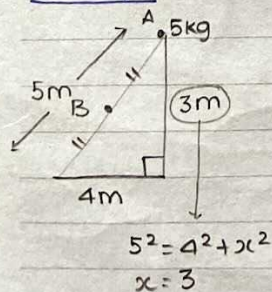 A 5kg
5m
B
3m
4m
5² = 4² + x²
x = 3